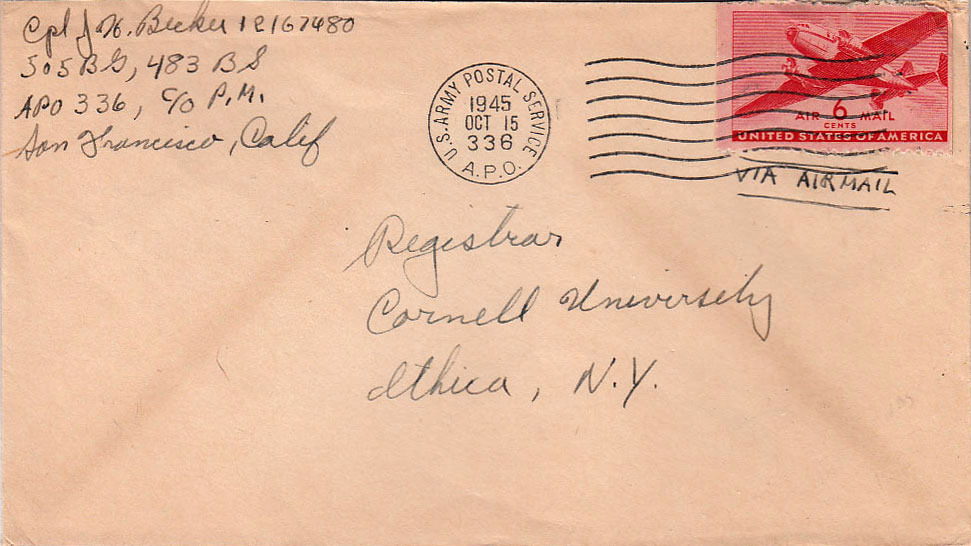 Cpl J. H. Becker 12167480
505 BG, 483 BS
APO 336, c/o P.M.
San Francisco, Calif
U.S. ARMY POSTAL SERVICE
1945
OCT 15
336
A.P.O.
AIR 6 MAIL
CENTS
UNITED STATES OF AMERICA
VIA AIRMAIL
Registrar
Cornell University
Ithica, N.Y.